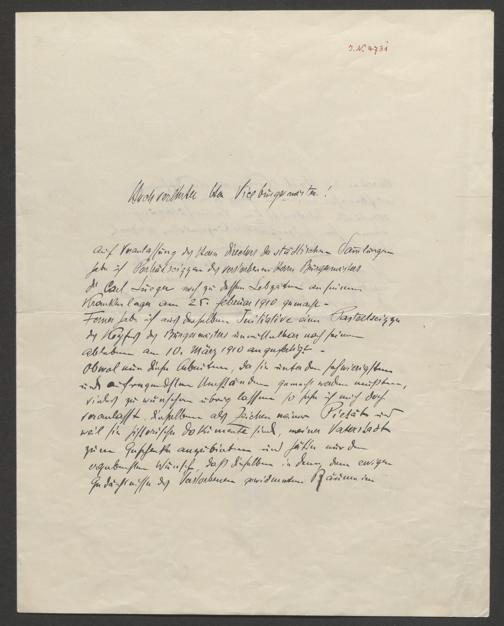 J.N. 4731
Hochverehrter Herr Vicebürgermeister!
Auf Veranlassung des Herrn Directors der städtischen Sammlungen
habe ich Porträtskizzen des verstorbenen Herrn Bürgermeisters
Dr Carl Lueger noch zu dessen Lebzeiten an seinem
Krankenlager am 25. Februar 1910 gemacht. –
Ferner habe ich aus derselben Initiative eine Pastellskizze
des Kopfes des Bürgermeisters unmittelbar nach seinem
Ableben am 10. März 1910 angefertigt. –
Obwol nun diese Arbeiten, da sie unter den schwierigsten
und aufregendsten Umständen gemacht werden mussten,
vieles zu wünschen übrig lassen so sehe ich mich doch
veranlasst, dieselben als Zeichen meiner Pietät und
weil sie historische Dokumente sind, meiner Vaterstadt
zum Geschenke anzubieten und hätte nur den
ergebensten Wunsch, daß dieselben in denen, dem ewigen
Gedächtnisse des Verstorbenen gewidmeten Räumen im